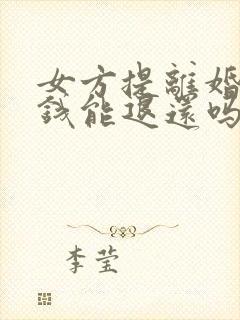 女方提離婚
錢能退還嗎
李莹